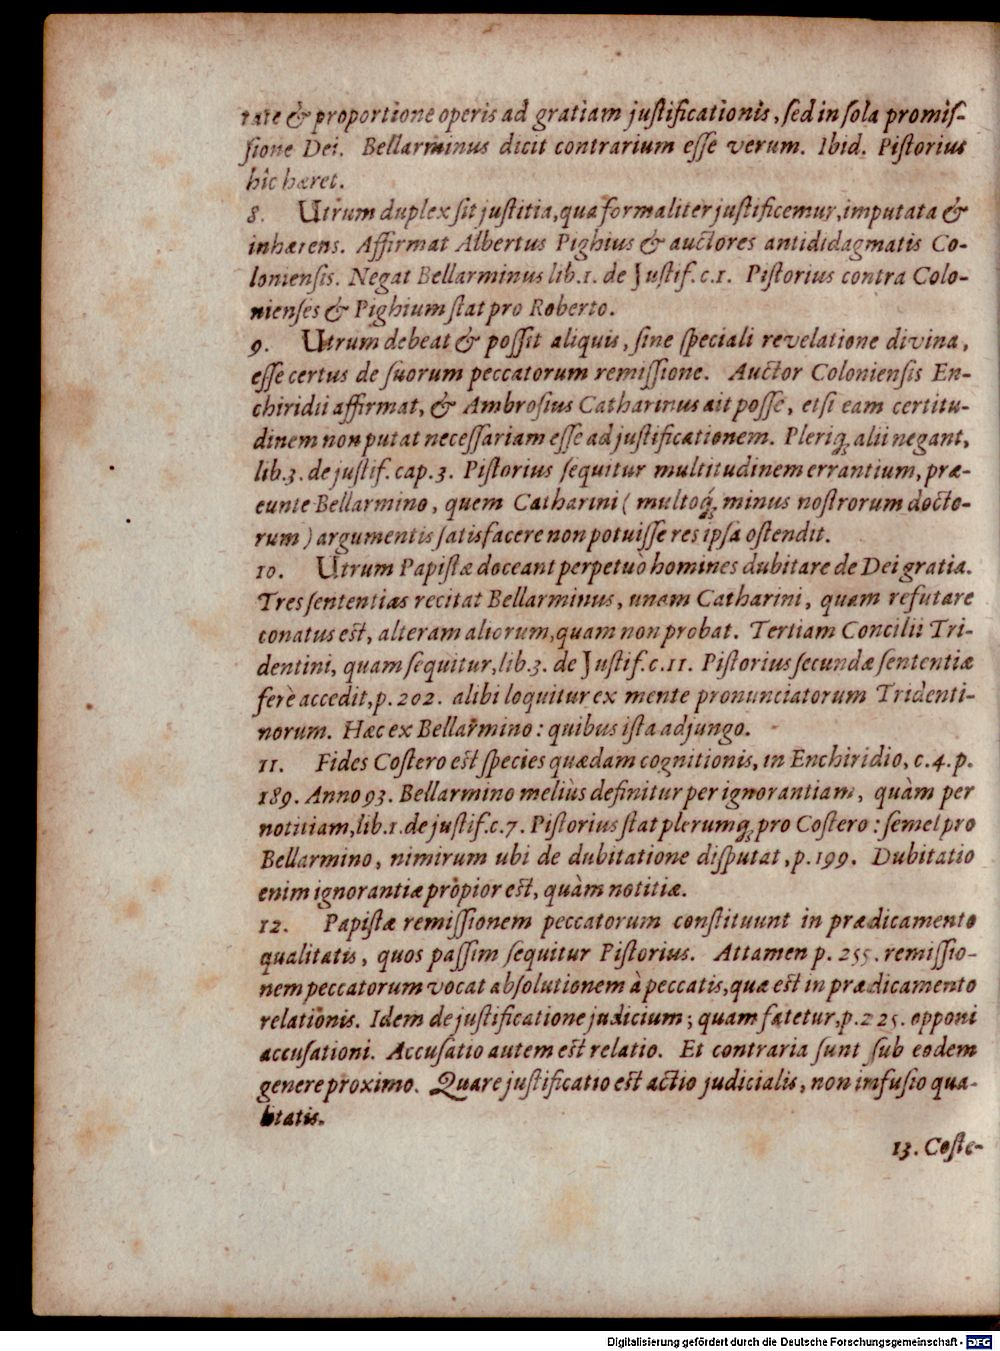 tate & proportione operis ad gratiam justificationis, sed in sola promis-
sione Dei. Bellarminus dicit contrarium esse verum. Ibid. Pistorius
hîc hæret.
8. Utrum duplex sit justitia, qua formaliter justificemur, imputata &
inhærens. Affirmat Albertus Pighius & auctores antididagmatis Co-
loniensis. Negat Bellarminus lib.1. de Justif. c.1. Pistorius contra Colo-
nienses & Pighium stat pro Roberto.
9. Utrum debeat & possit aliquis, sine speciali revelatione divina,
esse certus de suorum peccatorum remissione. Auctor Coloniensis En-
chiridii affirmat, & Ambrosius Catharinus ait posse, etsi eam certitu-
dinem non putat necessariam esse ad justificationem. Pleriq; alii negant,
lib.3. de justif. cap.3. Pistorius sequitur multitudinem errantium, præ-
eunte Bellarmino, quem Catharini ( multoq́; minus nostrorum docto-
rum ) argumentis satisfacere non potuisse res ipsa ostendit.
10. Utrum Papistæ doceant perpetuò homines dubitare de Dei gratia.
Tres sententias recitat Bellarminus, unam Catharini, quam refutare
conatus est, alteram aliorum, quam non probat. Tertiam Concilii Tri-
dentini, quam sequitur, lib.3. de Justif. c.11. Pistorius secundæ sententiæ
ferè accedit, p.202. alibi loquitur ex mente pronunciatorum Tridenti-
norum. Hæc ex Bellarmino: quibus ista adjungo.
11. Fides Costero est species quædam cognitionis, in Enchiridio, c.4. p.
189. Anno 93. Bellarmino meliùs definitur per ignorantiam, quàm per
notitiam, lib.1. de justif. c.7. Pistorius stat plerumq; pro Costero: semel pro
Bellarmino, nimirum ubi de dubitatione disputat, p.199. Dubitatio
enim ignorantiæ propior est, quàm notitiæ.
12. Papistæ remissionem peccatorum constituunt in prædicamento
qualitatis, quos passim sequitur Pistorius. Attamen p. 255. remissio-
nem peccatorum vocat absolutionem à peccatis, quæ est in prædicamento
relationis. Idem de justificatione judicium; quam fatetur, p.225. opponi
accusationi. Accusatio autem est relatio. Et contraria sunt sub eodem
genere proximo. Quare justificatio est actio judicialis, non infusio qua-
litatis.
13. Coste-
Digitalisierung gefördert durch die Deutsche Forschungsgemeinschaft - DFG